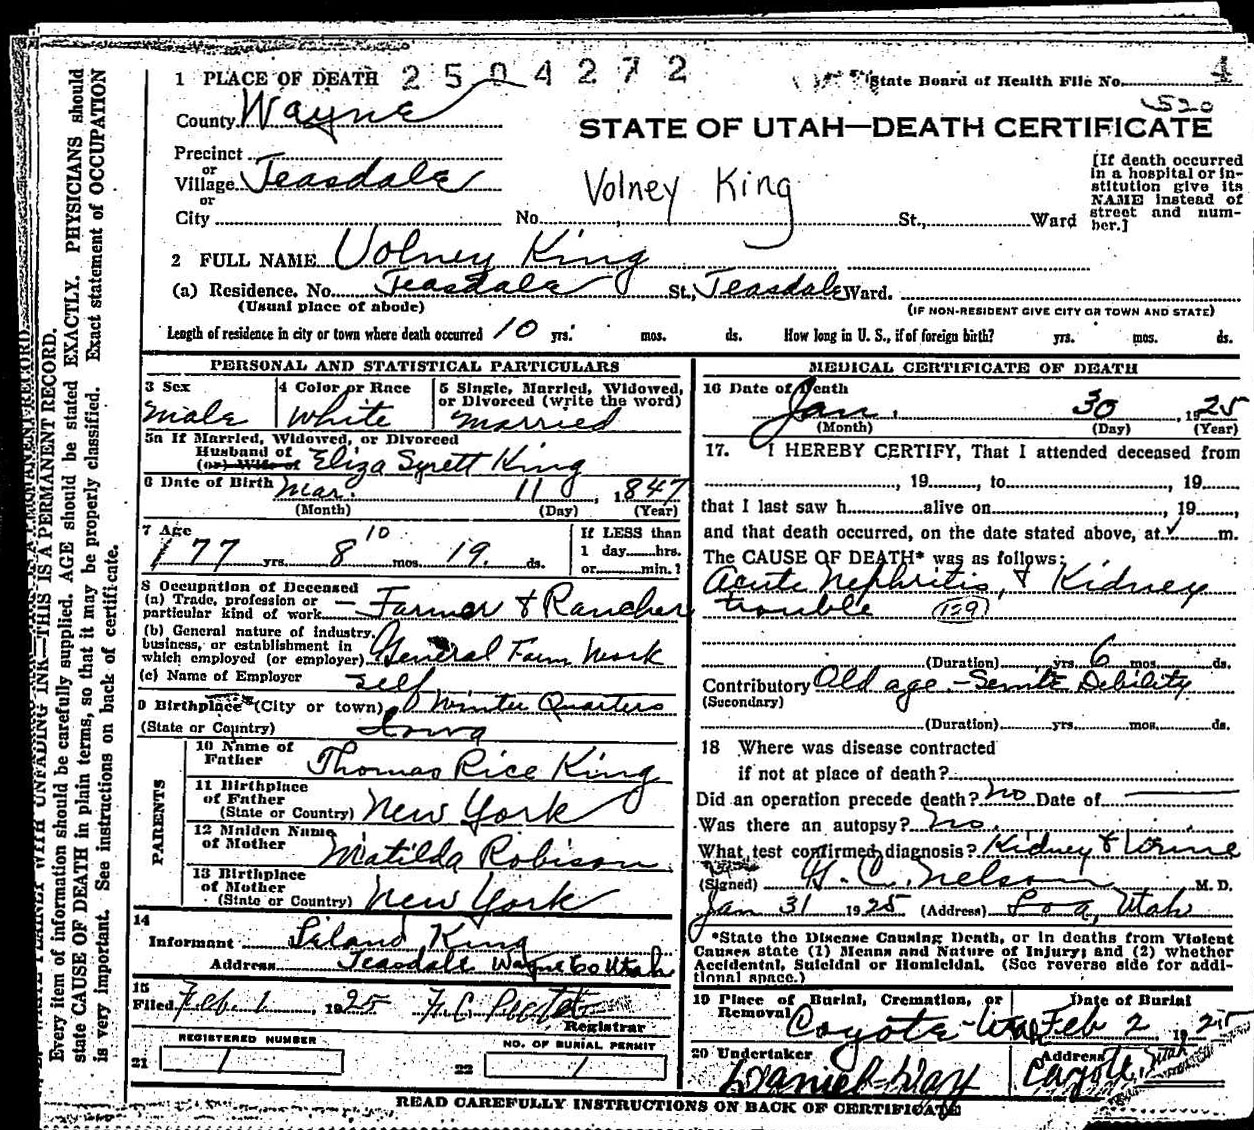 1 PLACE OF DEATH 2504272 State Board of Health File No. 4
County Wayne 520
STATE OF UTAH—DEATH CERTIFICATE
Precinct
or
Village Teasdale
or
City No. St., Ward
Volney King
[If death occurred in a hospital or institution give its NAME instead of street and number.]
2 FULL NAME Volney King
(a) Residence. No. Teasdale St., Teasdale Ward.
(Usual place of abode) (IF NON-RESIDENT GIVE CITY OR TOWN AND STATE)
Length of residence in city or town where death occurred 10 yrs. mos. ds. How long in U. S., if of foreign birth? yrs. mos. ds.
PERSONAL AND STATISTICAL PARTICULARS
3 Sex 4 Color or Race 5 Single, Married, Widowed,
or Divorced (write the word)
Male White Married
5a If Married, Widowed, or Divorced
Husband of
(or) Wife of Eliza Syrett King
6 Date of Birth Mar. 11, 1847
(Month) (Day) (Year)
7 Age
177 yrs. 8 10 mos. 19. ds.
If LESS than
1 day hrs.
or min.?
8 Occupation of Deceased
(a) Trade, profession or
particular kind of work — Farmer & Rancher
(b) General nature of industry,
business, or establishment in
which employed (or employer) General Farm Work
(c) Name of Employer self
9 Birthplace (City or town) Winter Quarters
(State or Country) Iowa
PARENTS
10 Name of
Father Thomas Rice King
11 Birthplace
of Father
(State or Country) New York
12 Maiden Name
of Mother Matilda Robison
13 Birthplace
of Mother
(State or Country) New York
14
Informant Leland King
Address Teasdale Wayne Co Utah
15
Filed Feb. 1 1925
Registrar
REGISTERED NUMBER NO. OF BURIAL PERMIT
21 1 22 1
MEDICAL CERTIFICATE OF DEATH
16 Date of Death
Jan. 30, 1925
(Month) (Day) (Year)
17. I HEREBY CERTIFY, That I attended deceased from
, 19, to , 19
that I last saw h alive on , 19,
and that death occurred, on the date stated above, at m.
The CAUSE OF DEATH* was as follows:
Acute Nephritis, & Kidney
trouble 129
(Duration) yrs. 6 mos. ds.
Contributory Old age - Senile Debility
(Secondary)
(Duration) yrs. mos. ds.
18 Where was disease contracted
if not at place of death?
Did an operation precede death? No Date of —
Was there an autopsy? No.
What test confirmed diagnosis? Kidney & Urine
(Signed) H. C. Nelson M. D.
Jan 31 1925 (Address) Loa, Utah
*State the Disease Causing Death, or in deaths from Violent
Causes state (1) Means and Nature of Injury; and (2) whether
Accidental, Suicidal or Homicidal. (See reverse side for addi-
tional space.)
19 Place of Burial, Cremation, or Date of Burial
Removal Coyote Utah Feb 2, 1925
20 Undertaker Address
Daniel Day Coyote, Utah
READ CAREFULLY INSTRUCTIONS ON BACK OF CERTIFICATE
WRITE PLAINLY WITH UNFADING INK—THIS IS A PERMANENT RECORD.
Every item of information should be carefully supplied. AGE should be stated EXACTLY. PHYSICIANS should
state CAUSE OF DEATH in plain terms, so that it may be properly classified. Exact statement of OCCUPATION
is very important. See instructions on back of certificate.